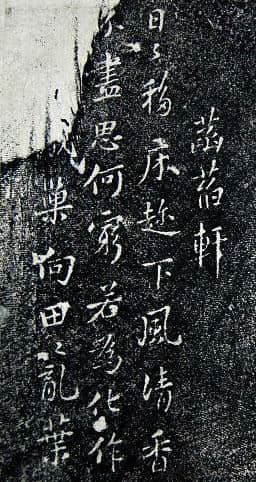 菡萏軒
日〻移床趁下風清香
不盡思何窮若為化作
歲巢向田〻亂葉